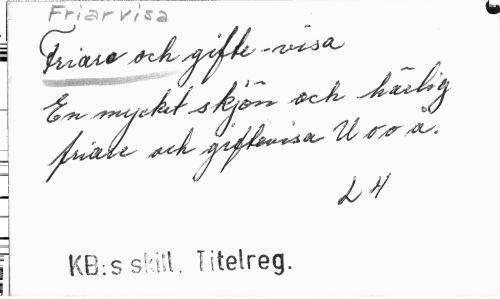 Friarvisa
Friare och gifte-visa
En mycket skjön och härlig
friare och giftevisa U o o å.
L 4
KB:s skill. Titelreg.